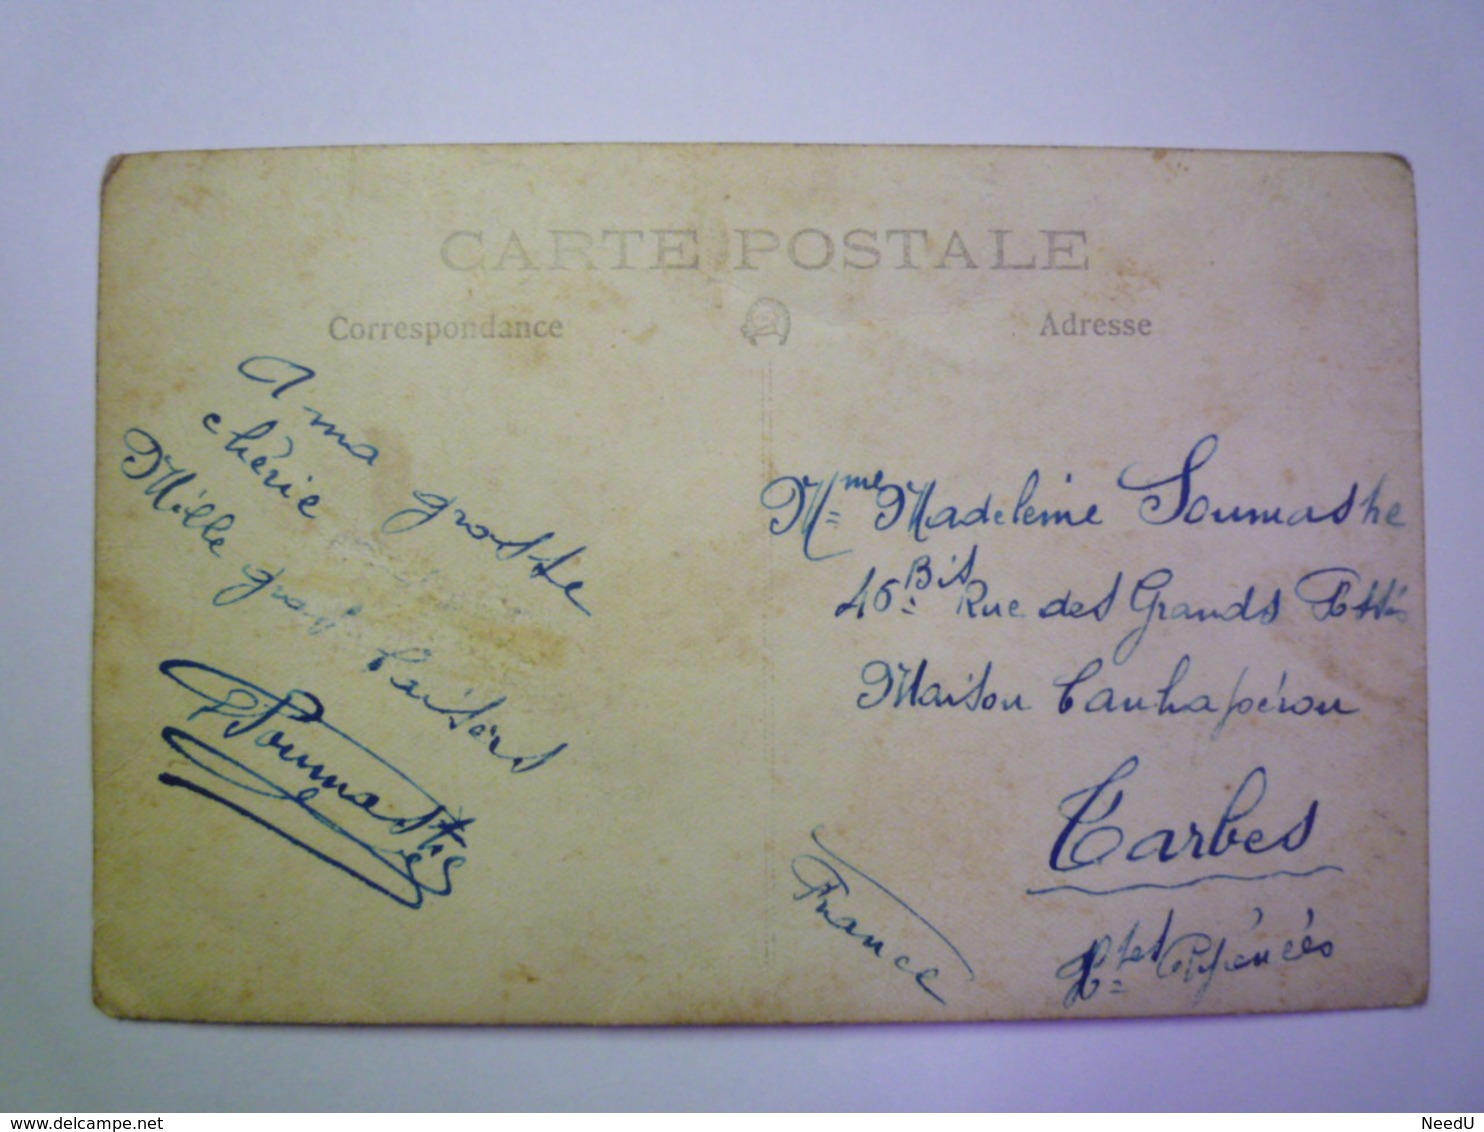 CARTE POSTALE
Correspondance
Adresse
A ma grosse
chérie
Mille gros baisers
Soumastre
Mme Madeleine Soumastre
46 Bis Rue des Grands Fossés
Maison
Tarbes
France
Htes Pyrénées
delcampe.net
NeedU